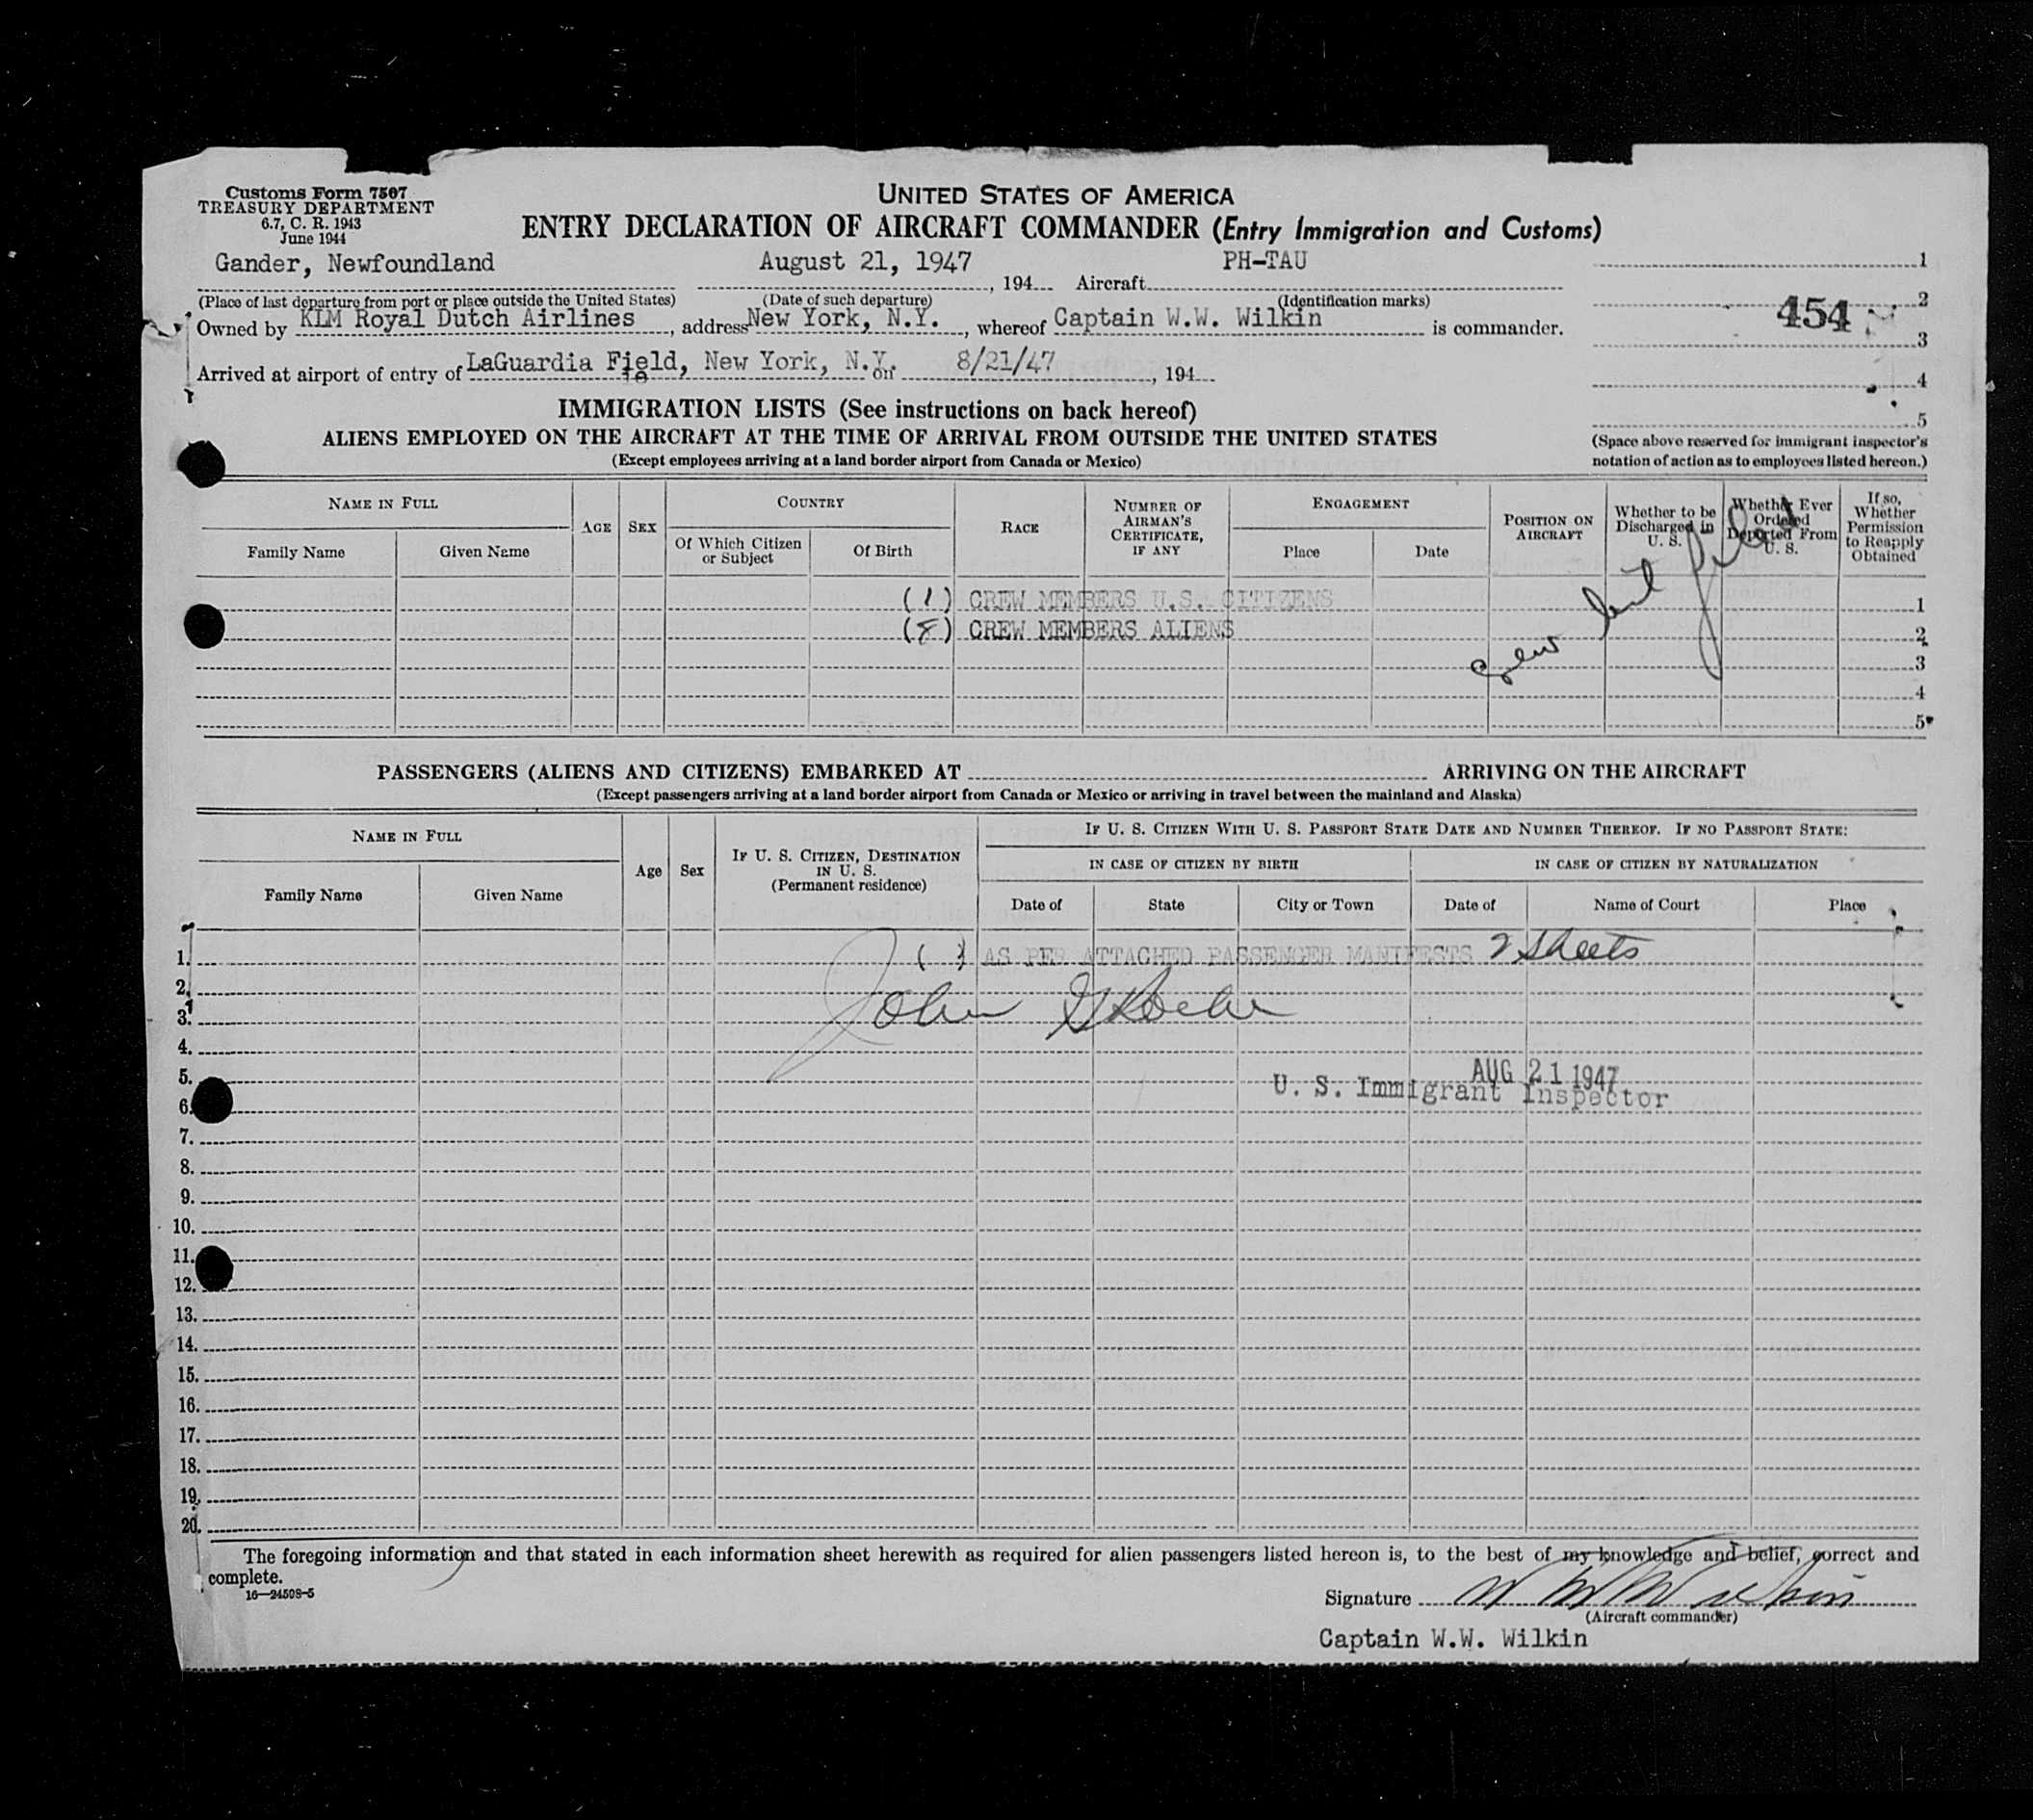 Customs Form 7507
TREASURY DEPARTMENT
6.7, C. R. 1943
June 1944
UNITED STATES OF AMERICA
ENTRY DECLARATION OF AIRCRAFT COMMANDER (Entry Immigration and Customs)
Gander, Newfoundland August 21, 1947 , 194 Aircraft PH-TAU
(Place of last departure from port or place outside the United States) (Date of such departure) (Identification marks)
Owned by KLM Royal Dutch Airlines, address New York, N.Y., whereof Captain W.W. Wilkin is commander.
Arrived at airport of entry of LaGuardia Field, New York, N.Y. on 8/21/47, 194
1
2
454
3
4
5
(Space above reserved for immigrant inspector's
notation of action as to employees listed hereon.)
IMMIGRATION LISTS (See instructions on back hereof)
ALIENS EMPLOYED ON THE AIRCRAFT AT THE TIME OF ARRIVAL FROM OUTSIDE THE UNITED STATES
(Except employees arriving at a land border airport from Canada or Mexico)
NAME IN FULL
Family Name Given Name
AGE SEX
COUNTRY
Of Which Citizen or Subject Of Birth
RACE
NUMBER OF AIRMAN'S CERTIFICATE, IF ANY
ENGAGEMENT
Place Date
POSITION ON AIRCRAFT
Whether to be Discharged in U. S.
Whether Ever Ordered Deported From U. S.
If so, Whether Permission to Reapply Obtained
(1) CREW MEMBERS U.S. CITIZENS 1
(8) CREW MEMBERS ALIENS 2
Crew list filed
3
4
5
PASSENGERS (ALIENS AND CITIZENS) EMBARKED AT ARRIVING ON THE AIRCRAFT
(Except passengers arriving at a land border airport from Canada or Mexico or arriving in travel between the mainland and Alaska)
NAME IN FULL
Family Name Given Name
Age Sex
IF U. S. CITIZEN, DESTINATION IN U. S.
(Permanent residence)
IF U. S. CITIZEN WITH U. S. PASSPORT STATE DATE AND NUMBER THEREOF. IF NO PASSPORT STATE:
IN CASE OF CITIZEN BY BIRTH IN CASE OF CITIZEN BY NATURALIZATION
Date of State City or Town Date of Name of Court Place
1. ( ) AS PER ATTACHED PASSENGER MANIFESTS 2 sheets
2.
John
3.
4.
5. AUG 21 1947
U. S. Immigrant Inspector
6.
7.
8.
9.
10.
11.
12.
13.
14.
15.
16.
17.
18.
19.
20.
The foregoing information and that stated in each information sheet herewith as required for alien passengers listed hereon is, to the best of my knowledge and belief, correct and
complete.
16—24508-5
Signature W W Wilkin
(Aircraft commander)
Captain W.W. Wilkin